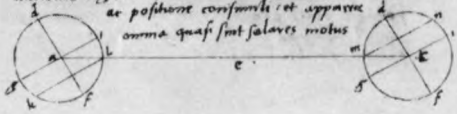 ac positione consimili et apparent
omnia quasi sint solares motus
d d n
a l e m
g k f g f